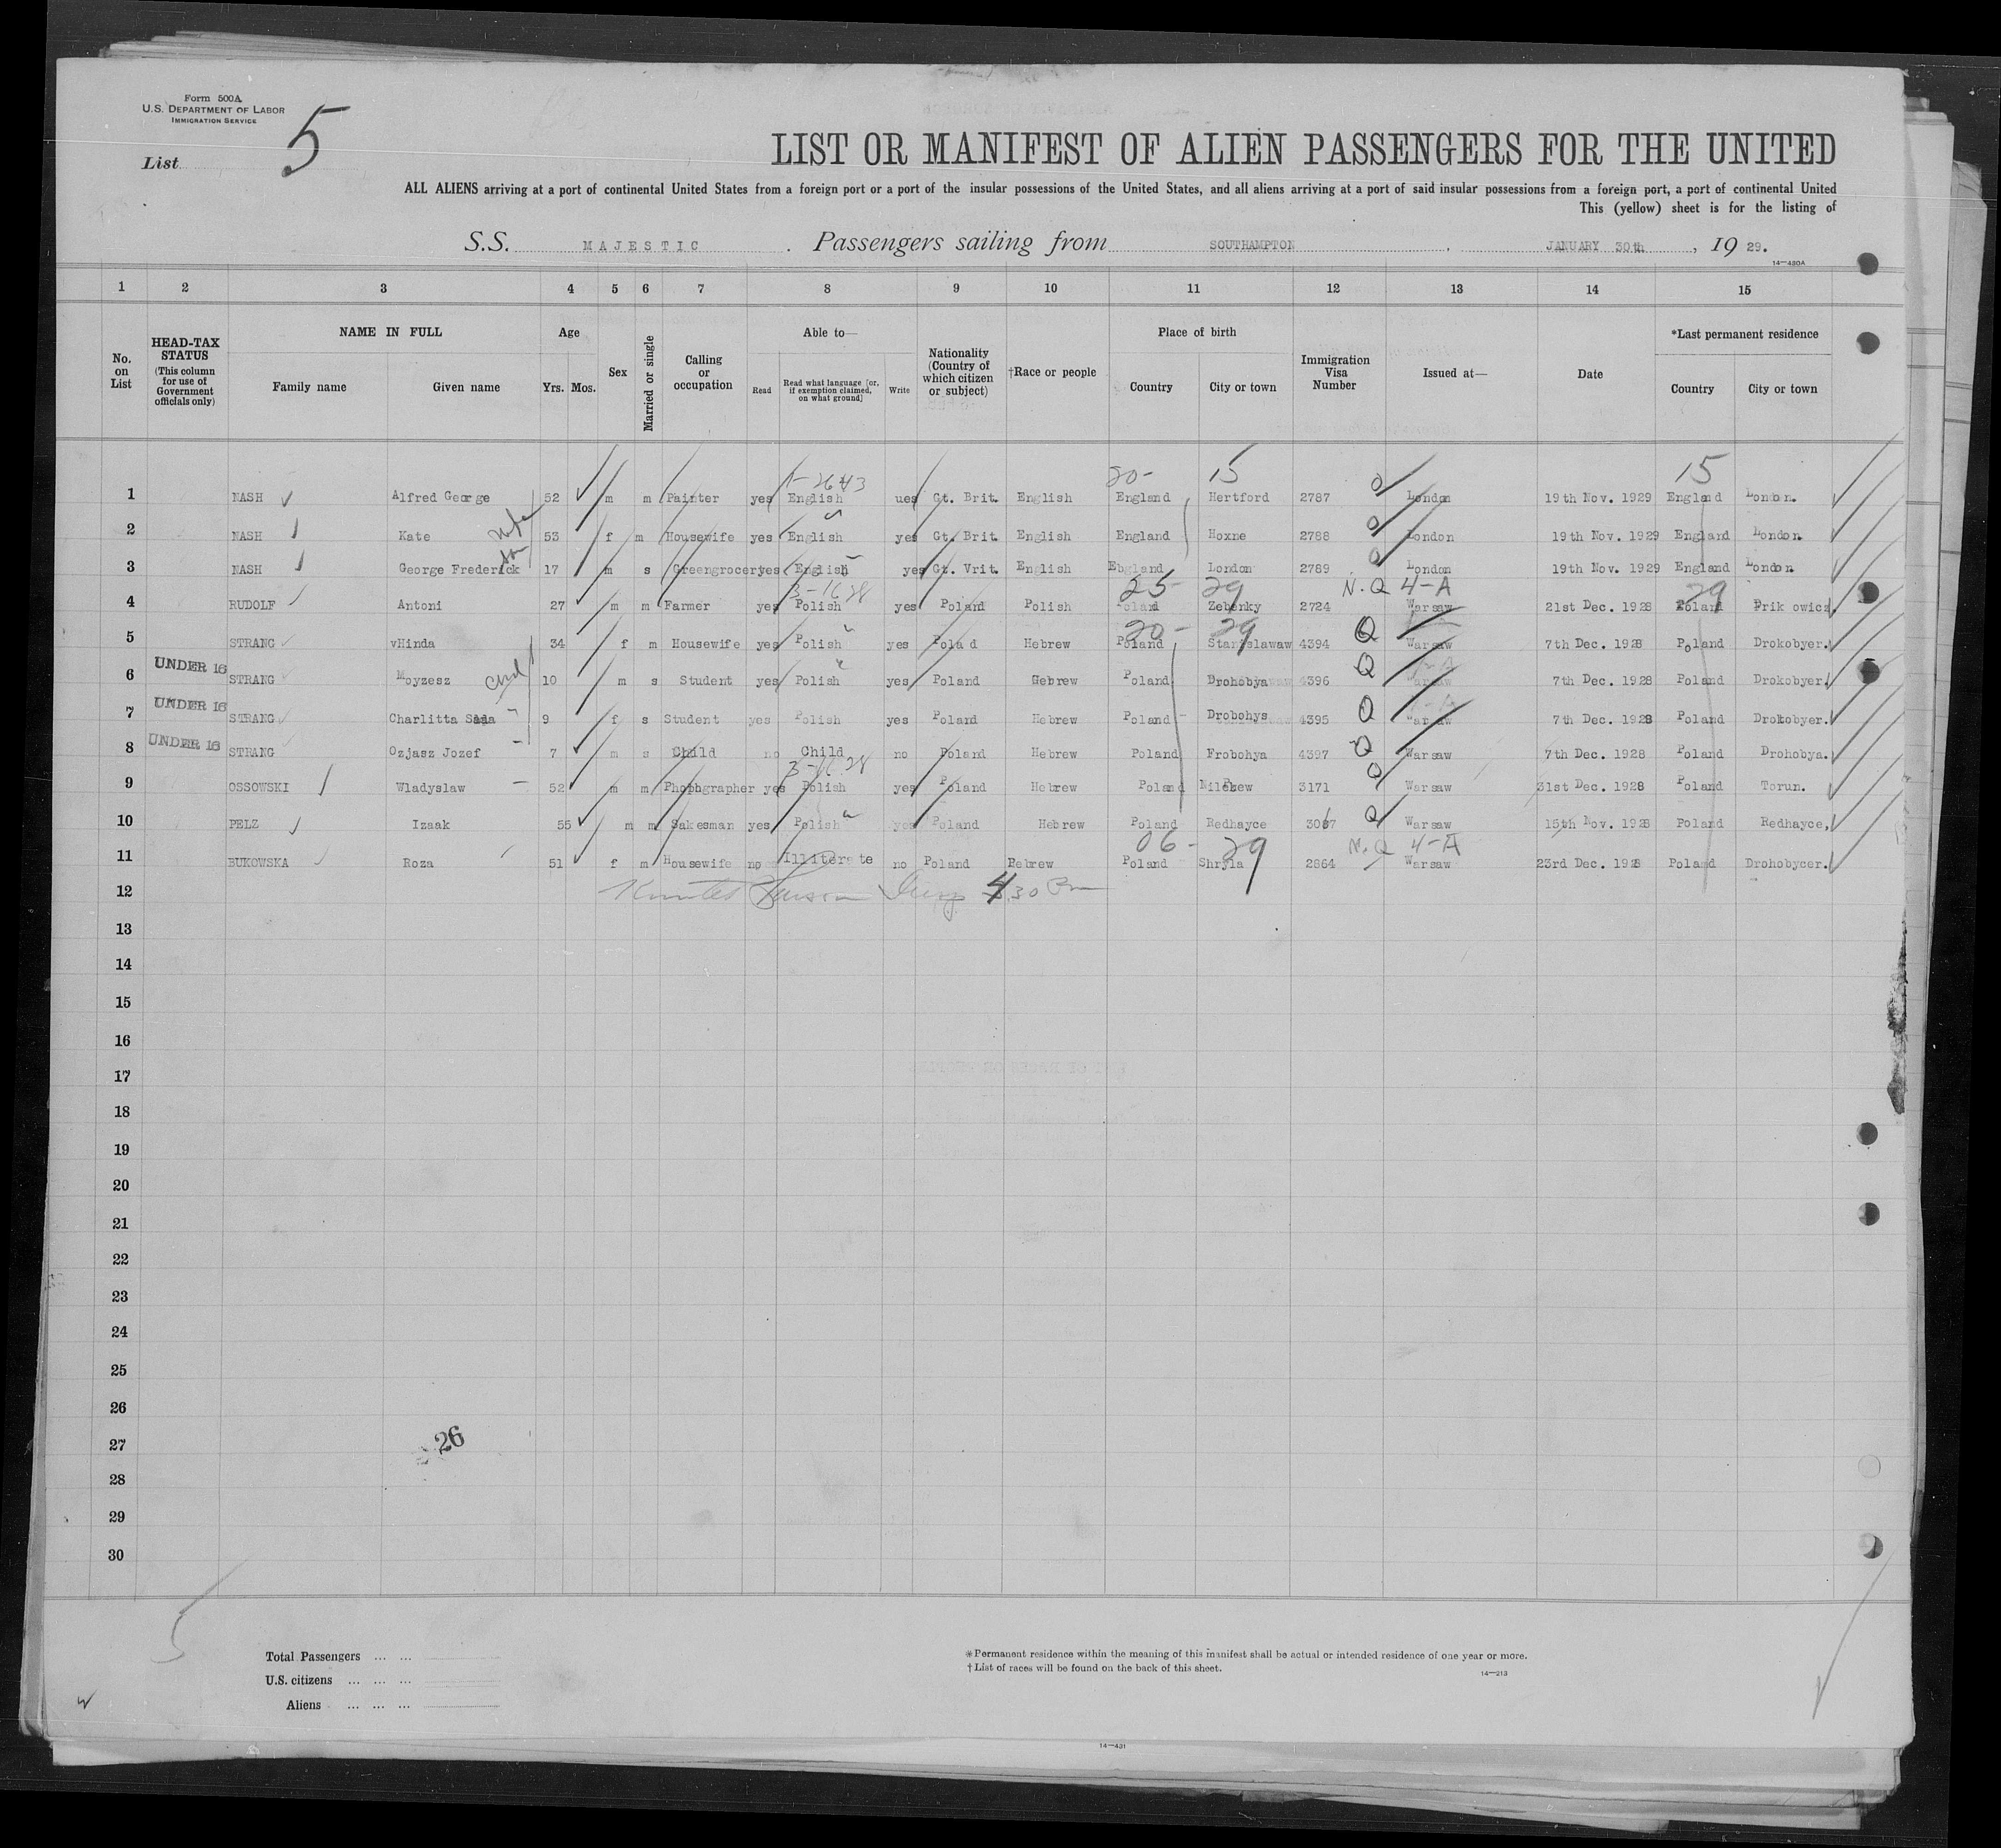 Form 500A
U.S. DEPARTMENT OF LABOR
IMMIGRATION SERVICE
List 5
LIST OR MANIFEST OF ALIEN PASSENGERS FOR THE UNITED
ALL ALIENS arriving at a port of continental United States from a foreign port or a port of the insular possessions of the United States, and all aliens arriving at a port of said insular possessions from a foreign port, a port of continental United
This (yellow) sheet is for the listing of
S.S. MAJESTIC . Passengers sailing from SOUTHAMPTON , JANUARY 30th , 19 29.
14—430A
1 2 3 4 5 6 7 8 9 10 11 12 13 14 15
No. on List
HEAD-TAX STATUS (This column for use of Government officials only)
NAME IN FULL Family name Given name
Age Yrs. Mos.
Sex
Married or single
Calling or occupation
Able to— Read Read what language [or, if exemption claimed, on what ground] Write
Nationality (Country of which citizen or subject)
†Race or people
Place of birth Country City or town
Immigration Visa Number
Issued at—
Date
*Last permanent residence Country City or town
1-2643 20- 15 15
1 NASH Alfred George 52 m m Painter yes English ues Gt. Brit. English England Hertford 2787 London 19th Nov. 1929 England London.
2 NASH Kate wife 53 f m Housewife yes English yes Gt. Brit. English England Hoxne 2788 London 19th Nov. 1929 England London.
3 NASH George Frederick son 17 m s Greengrocer yes English yes Gt. Vrit. English Ebgland London 2789 London 19th Nov. 1929 England London.
3-1628 25- 29 N.Q 4-A 29
4 RUDOLF Antoni 27 m m Farmer yes Polish yes Poland Polish Poland Zelenky 2724 Warsaw 21st Dec. 1928 Poland Prik owicz.
20- 29
5 STRANG vHinda 34 f m Housewife yes Polish yes Pola d Hebrew Poland Stanislawaw 4394 Q Warsaw 7th Dec. 1928 Poland Drokobyer.
6 UNDER 16 STRANG Moyzesz Chd 10 m s Student yes Polish yes Poland Gebrew Poland Drohobya 4396 Q Warsaw 7th Dec. 1928 Poland Drokobyer.
7 UNDER 16 STRANG Charlitta 9 f s Student yes Polish yes Poland Hebrew Poland Drobohys 4395 Q Warsaw 7th Dec. 1928 Poland Drokobyer.
8 UNDER 16 STRANG Ozjasz Jozef 7 m s Child no Child no Poland Hebrew Poland Frobohya 4397 Q Warsaw 7th Dec. 1928 Poland Drohobya.
3-1628
9 OSSOWSKI Wladyslaw 52 m m Phophgrapher yes Polish yes Poland Hebrew Poland 3171 Q Warsaw 31st Dec. 1928 Poland Torun.
10 PELZ Izaak 55 m m Sakesman yes Polish yes Poland Hebrew Poland Redhayce 3067 Q Warsaw 15th Nov. 1928 Poland Redhayce,
06- 29 N.Q 4-A
11 BUKOWSKA Roza 51 f m Housewife no Illiterate no Poland Hebrew Poland Shryla 2864 Warsaw 23rd Dec. 1928 Poland Drohobycer.
12 4 30 Pm
13
14
15
16
17
18
19
20
21
22
23
24
25
26
27
28
29
30
26
5
Total Passengers ... ...
U.S. citizens ... ... ...
Aliens ... ... ...
*Permanent residence within the meaning of this manifest shall be actual or intended residence of one year or more.
†List of races will be found on the back of this sheet.
14—213
14—431